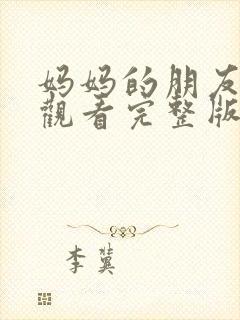 妈妈的朋友
觀看完整版
李冀